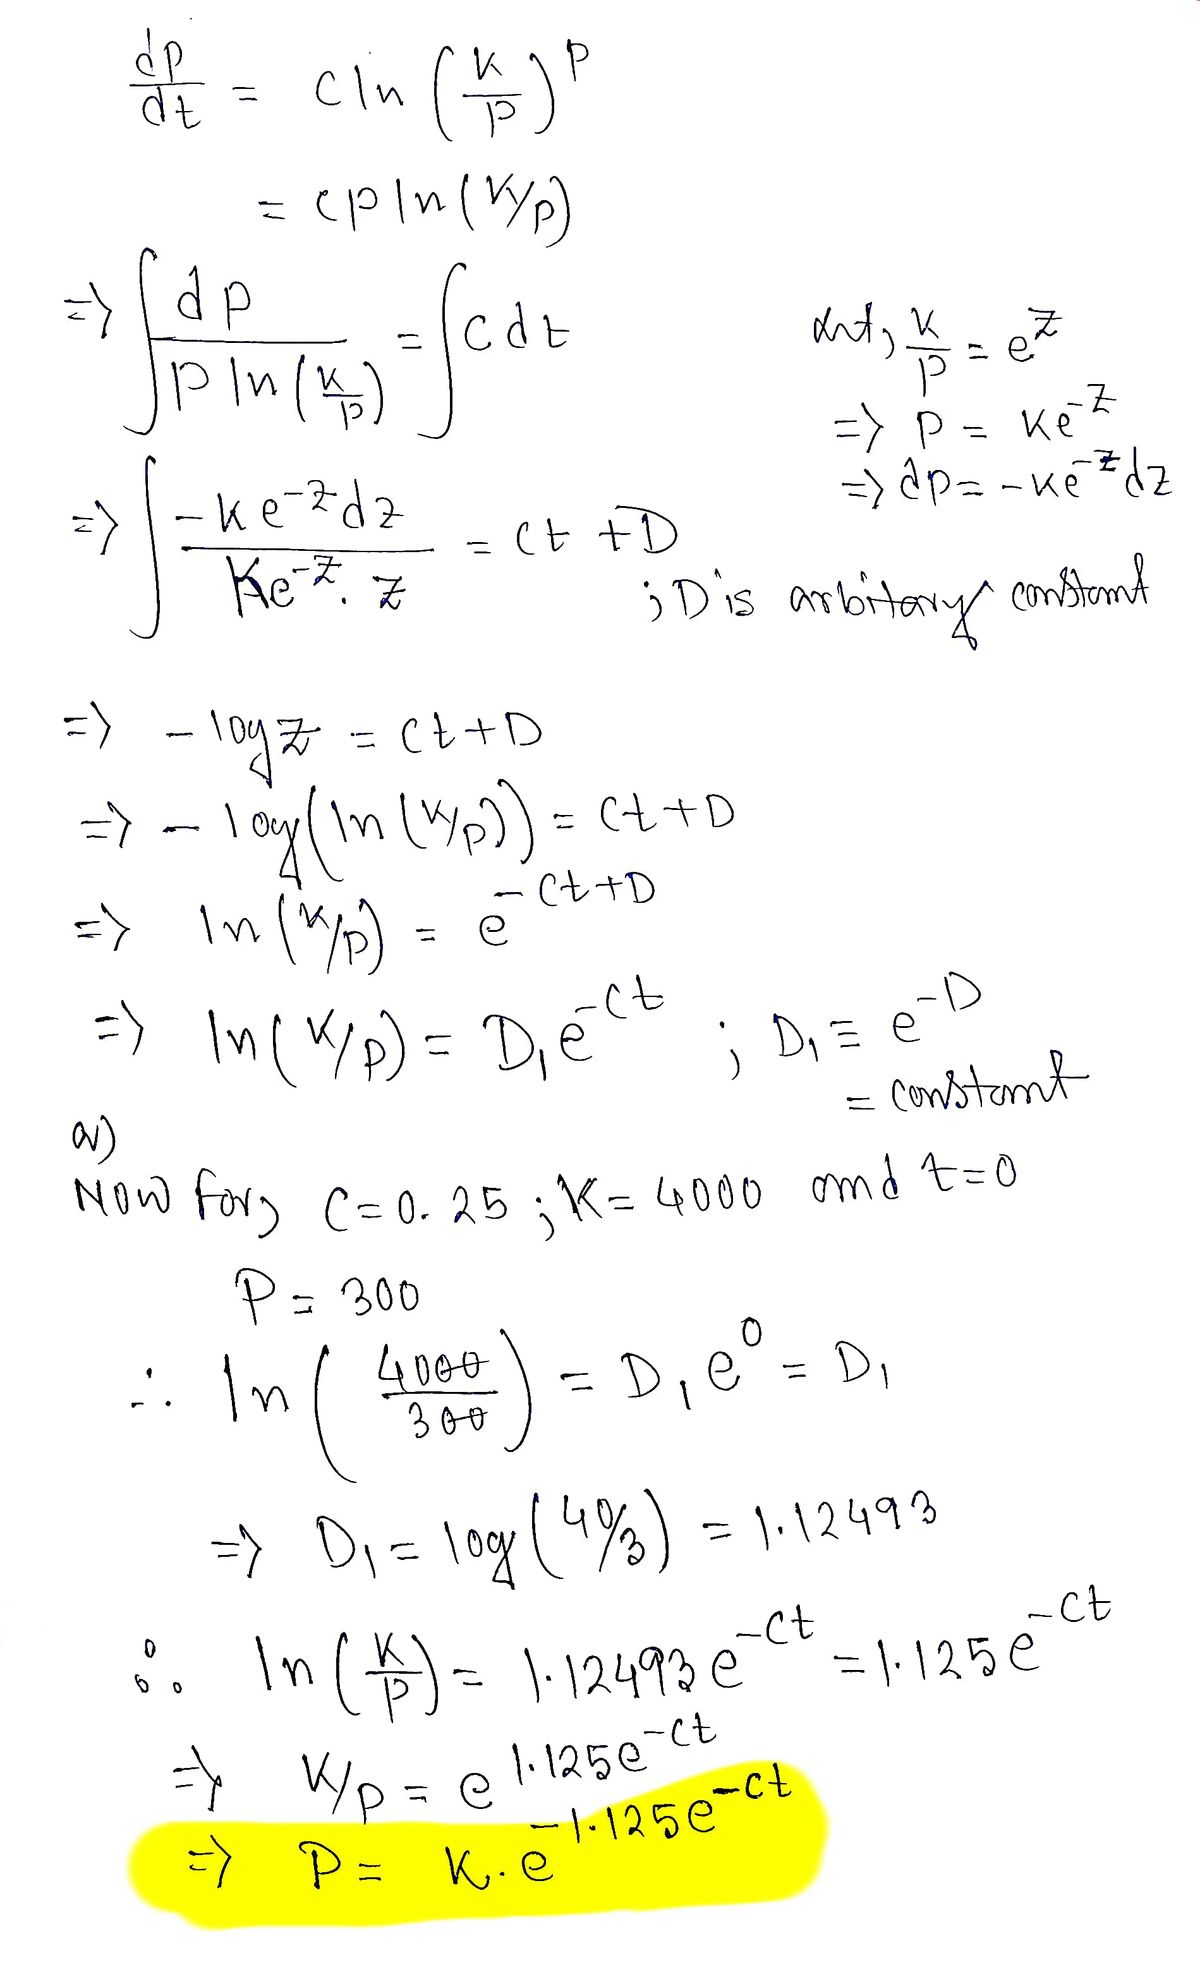 dp/dt = c ln (k/p)^p
= cp ln(k/p)
=> ∫ dp / (p ln(k/p)) = ∫ c dt
Let, k/p = e^z
=> p = ke^-z
=> dp = -ke^-z dz
=> ∫ -ke^-z dz / (Ke^-z . z) = ct + D
; D is arbitary constant
=> - log z = ct + D
=> - log(ln(k/p)) = ct + D
=> ln(k/p) = e^-ct+D
=> ln(k/p) = D₁e^-ct ; D₁ ≡ e^-D
= constant
a)
Now for, C = 0.25 ; K = 4000 and t = 0
P = 300
∴ ln(4000/300) = D₁e^0 = D₁
=> D₁ = log(40/3) = 1.12493
∴ ln(k/p) = 1.12493e^-ct = 1.125e^-ct
=> k/p = e^1.125e^-ct
=> P = K.e^-1.125e^-ct